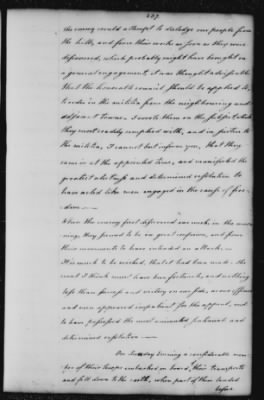 237
the enemy would attempt to dislodge our people from
the hills, and force their works as soon as they were
discovered, which probably might have brought on
a general engagement, it was thought adviseable
that the honorable council should be applied to,
to order in the militia from the neighbouring and
adjacent towns. I wrote them on the subject which
they most readily complied with, and in justice to
the militia, I cannot but inform you, that they
came in at the appointed time, and manifested the
greatest alertness and determined resolution to
have acted like men engaged in the cause of free-
dom —
When the enemy first discovered our works in the morn-
ing, they seemed to be in great confusion, and from
their movements to have intended an attack. —
It is much to be wished, that it had been made. the
event I think must have been fortunate, and nothing
less than success and victory on our side, as our officers
and men appeared impatient for the appeal, and
to have possessed the most animated sentiments and
determined resolution —
On Tuesday evening a considerable num-
ber of their troops embarked on board of their transports
and fell down to the castle, where part of them landed
before